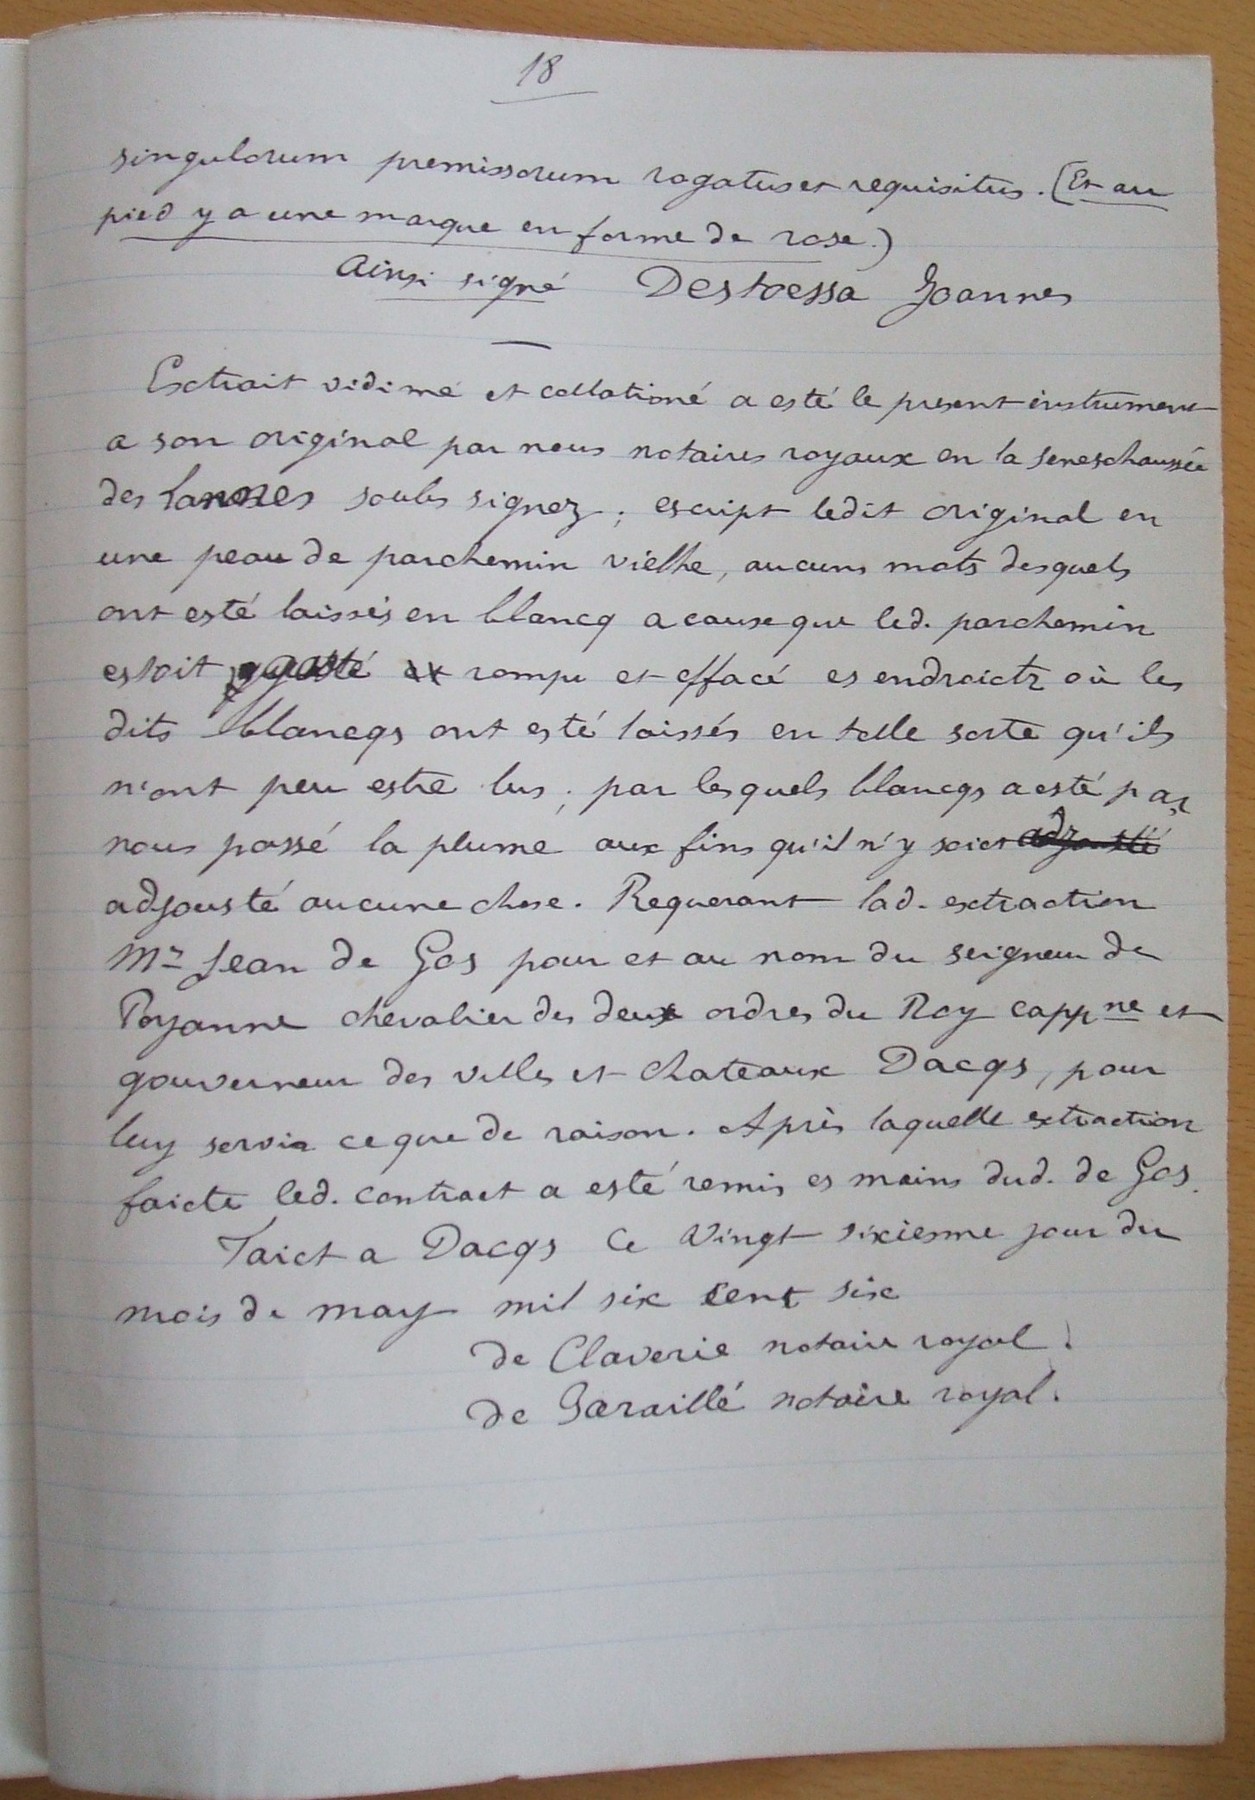 18
singulorum premissorum rogatus et requisitus. (Et au
pied y a une marque en forme de rose.)
Ainsi signé Destoessa Joannes
Extrait vidimé et collationé a esté le present instrument
a son original par nous notaires royaux en la seneschaussée
des Lannes soubs signez ; escript ledit original en
une peau de parchemin vielhe, aucuns mots desquels
ont esté laissés en blancq a cause que led. parchemin
estoit gasté et rompu et effacé es endroictz où les
dits blancqs ont esté laissés en telle sorte qu'ils
n'ont peu estre lus ; par lesquels blancqs a esté par
nous passé la plume aux fins qu'il n'y soict adjousté
adjousté aucune chose. Requerant lad. extraction
Mr Jean de Gos pour et au nom du seigneur de
Poyanne chevalier des deux ordres du Roy capp ne et
gouverneur des villes et chateaux Dacqs, pour
luy servir ce que de raison. Après laquelle extraction
faicte led. contract a esté remis es mains dud. de Gos.
Faict a Dacqs Ce vingt sixiesme jour du
mois de may mil six cent six
de Claverie notaire royal.
de notaire royal.